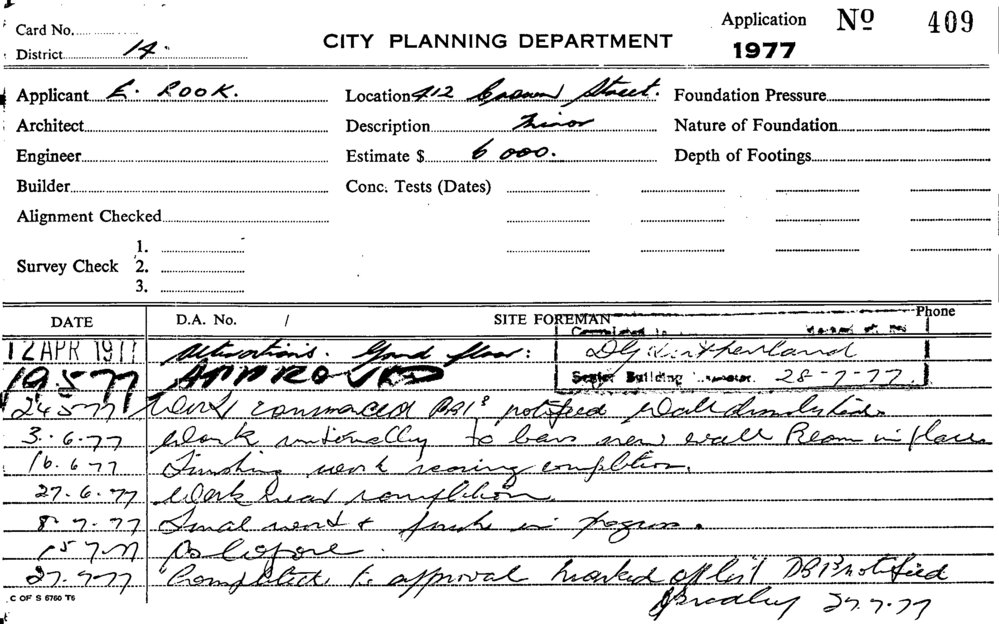 Card No.
Application Nº 409
District 14.
CITY PLANNING DEPARTMENT
1977
Applicant E. ROOK. Location 412 Crown Street. Foundation Pressure
Architect Description Minor Nature of Foundation
Engineer Estimate $ 6 000. Depth of Footings
Builder Conc. Tests (Dates)
Alignment Checked
1.
Survey Check 2.
3.
DATE D.A. No. / SITE FOREMAN Phone
12 APR 1977 Alterations. Ground floor:
19.5.77 APPROVED Senior Building 28-7-77.
24.5.77 Work commenced notified Wall demolished
3.6.77 Work internally to new wall Beam in place
16.6.77 Finishing work nearing completion.
27.6.77 Work near completion
8.7.77 Final work & finish in progress.
15.7.77 As before.
27.7.77 Completed to approval marked off list notified
C OF S 5760 T6
Bradley 27.7.77